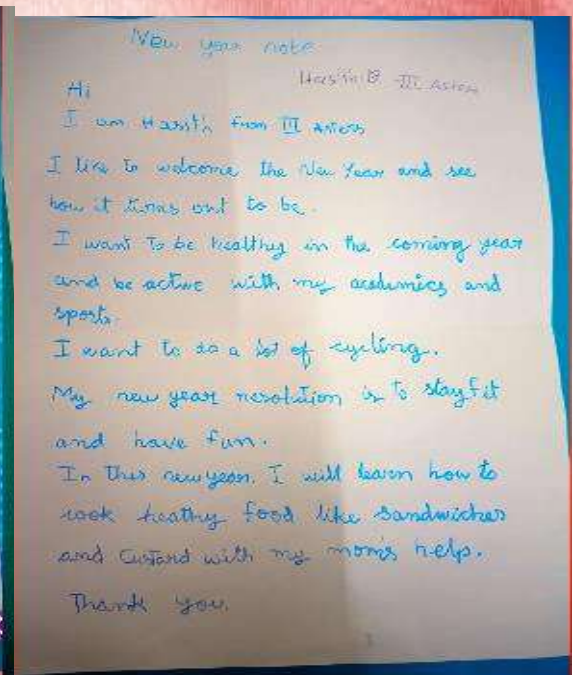 New year note
III Asters
Hi
I am Hassth from III Asters
I like to welcome the New Year and see
how it turns out to be.
I want to be healthy in the coming year
and be active with my academics and
sports.
I want to do a lot of cycling.
My new year resolution is to stay fit
and have fun.
In this new year, I will learn how to
cook heathy food like sandwiches
and Custard with my mom's help.
Thank you.